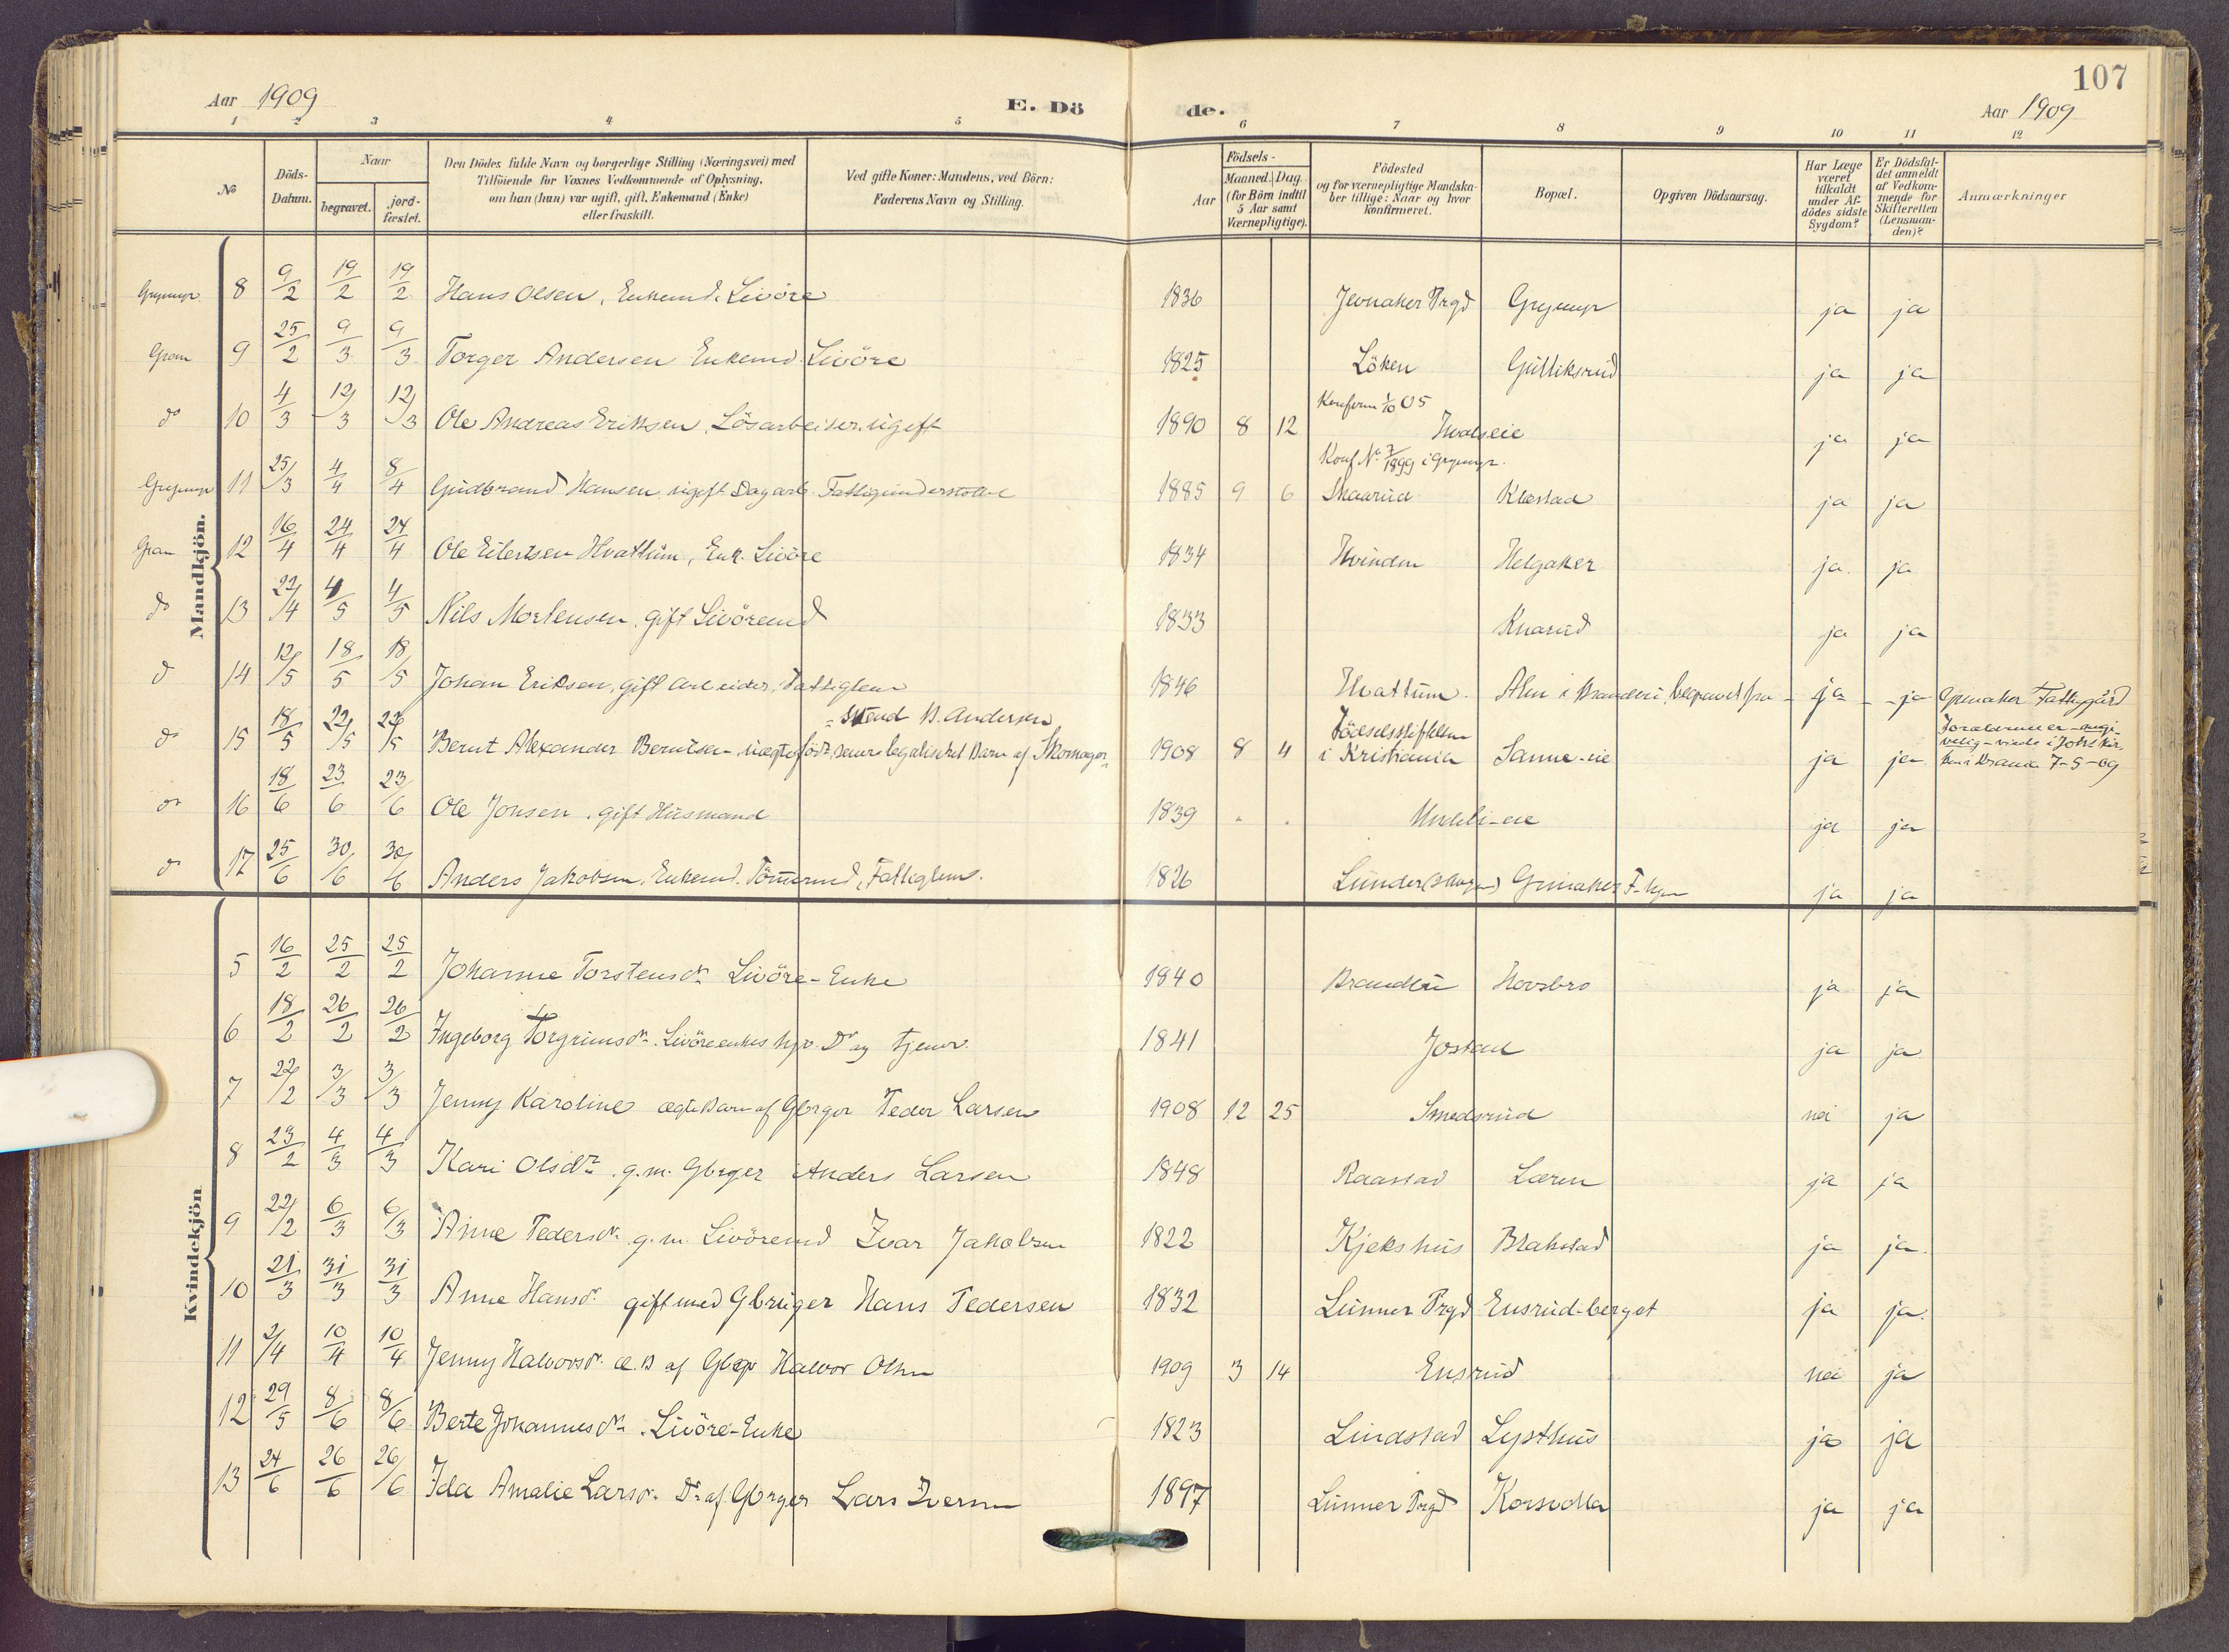 107
Aar 1909
E. Dö
de.
Aar 1909
1 2 3 4 5 6 7 8 9 10 11 12
№
Döds-Datum.
Naar
begravet.
jord-fæstet.
Den Dödes fulde Navn og borgerlige Stilling (Næringsvei) med Tilföiende for Voxnes Vedkommende af Oplysning, om han (hun) var ugift, gift, Enkemand (Enke) eller fraskilt.
Ved gifte Koner: Mandens, ved Börn: Faderens Navn og Stilling.
Födsels-
Aar
Maaned. Dag.
(for Börn indtil 5 Aar samt Værnepligtige).
Födested og for værnepligtige Mandskaber tillige: Naar og hvor konfirmeret.
Bopæl.
Opgiven Dödsaarsag.
Har Læge været tilkaldt under Afdödes sidste Sygdom?
Er Dödsfaldet anmeldt af Vedkommende for Skifteretten (Lensmanden)?
Anmærkninger
Mandkjön.
Grymyr 8 9/2 19/2 19/2 Hans Olsen, Enkemd. Livöre 1836 Jevnaker Prgd Grymyr ja ja
Gran 9 25/2 9/3 9/3 Torger Andersen Enkemd. Livöre 1825 Löken Gulliksrud ja ja
do 10 4/3 12/3 12/3 Ole Andreas Eriksen, Lösarbeider. ugift 1890 8 12 Konfirm 1/10 05 Hvalseie ja ja
Grymyr 11 25/3 4/4 8/4 Gudbrand Hansen ugift Dagarb. Fattigunderstöttet 1885 9 6 Konf. No 7/1899 i Grymyr. Skaarud Klæstad ja ja
Gran 12 16/4 24/4 24/4 Ole Eilertsen Hvattum, Enk. Livöre 1834 Hvinden Helgaker ja. ja
do 13 22/4 4/5 4/5 Nils Mortensen, gift Livöremd 1833 Knarud ja ja
do 14 12/5 18/5 18/5 Johan Eriksen, gift arbeider, Fattiglem 1846 Hvattum. Alm i Brandbu, begravet fra - ja - - ja Grinaker Fattiggård
do 15 18/5 22/5 22/5 Bernt Alexander Berntsen uægtefödt, senere legaliseret Barn af Skomager-Svend B. Andersen 1908 8 4 Födselsstiftelsen i Kristiania Sanne-eie ja ja Forældrene er viede i Joh.s kirken i Krania 7-5-09
do 16 18/6 23/6 23/6 Ole Jonsen, gift Husmand 1839 - - Undeli-eie ja ja
do 17 25/6 30/6 30/6 Anders Jakobsen, Enkemd. Tömmermd, Fattiglem. 1826 Lunder (Skogen) Grinaker F-hjem ja ja
Kvindekjön
5 16/2 25/2 25/2 Johanne Torstensdr. Livöre-Enke 1840 Brandbu Hovsbro ja ja
6 18/2 26/2 26/2 Ingeborg Torgrimsdr. Livöreenkes hjv. Dr og tjener. 1841 Jostad ja ja
7 22/2 3/3 3/3 Jenny Karoline ægte Barn af Gbrger Peder Larsen 1908 12 25 Smedsrud nei ja
8 23/2 4/3 4/3 Kari Olsdr. g.m. Gbrger Anders Larsen 1848 Raastad Læren ja ja
9 22/2 6/3 6/3 Anne Pedersdr. g.m. Livöremd Ivar Jakobsen 1822 Kjekshus Blakstad ja ja.
10 21/3 31/3 31/3 Anne Hansdr. gift med Gbruger Hans Pedersen 1832 Lunner Prgd Ensrud-berget ja ja.
11 2/4 10/4 10/4 Jenny Halvorsdr. æ.B af Gbgr Halvor Olsen 1909 3 14 Ensrud nei ja
12 29/5 8/6 8/6 Berte Johannesdr. Livöre-Enke 1823 Lindstad Lysthus ja ja
13 24/6 26/6 26/6 Ida Amalie Larsdr. Dr. af Gbrger Lars Iversen 1897 Lunner Prgd Korsvolla ja ja